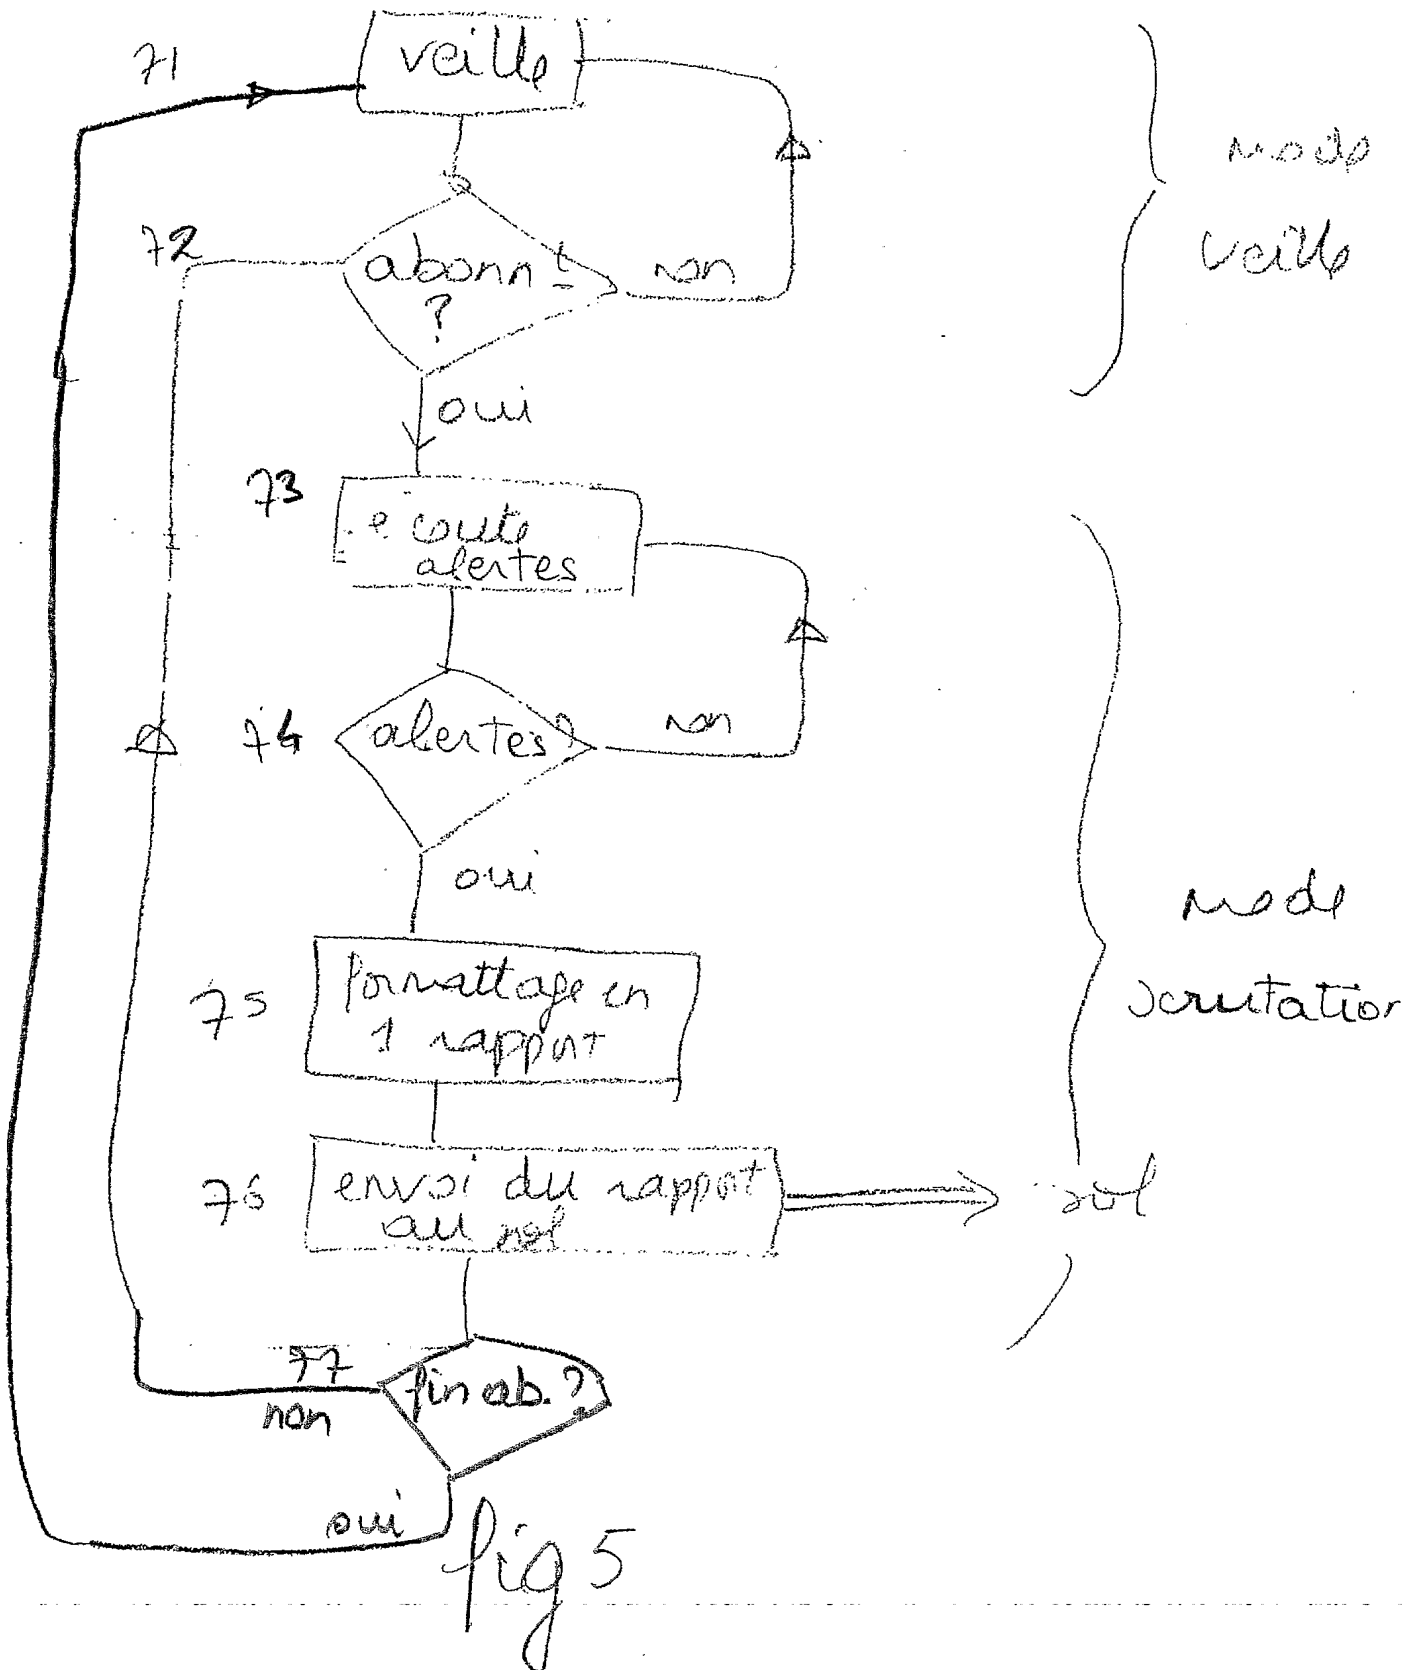 71
veille
mode
veille
72
abonn^t
?
non
oui
73
ecoute
alertes
74
alertes?
non
oui
mode
scrutation
75
formattage en
1 rapport
76
envoi du rapport
au sol
sol
77
fin ab.?
non
oui
fig 5